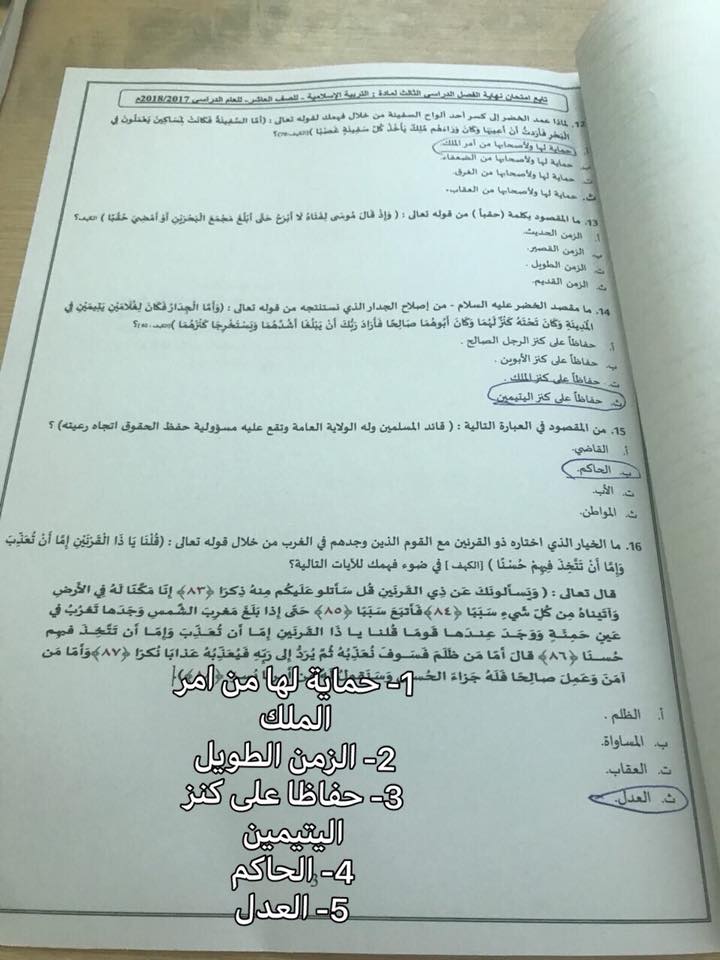 تابع امتحان نهاية الفصل الدراسي الثالث لمادة : التربية الإسلامية - للصف العاشر - للعام الدراسي 2018/2017م
12. لماذا عمد الخضر إلى كسر أحد ألواح السفينة من خلال فهمك لقوله تعالى : (أَمَّا السَّفِينَةُ فَكَانَتْ لِمَسَاكِينَ يَعْمَلُونَ فِي
الْبَحْرِ فَأَرَدْتُ أَنْ أَعِيبَهَا وَكَانَ وَرَاءَهُم مَّلِكٌ يَأْخُذُ كُلَّ سَفِينَةٍ غَصْبًا )؟
أ. حماية لها ولأصحابها من أمر الملك.
ب. حماية لها ولأصحابها من الضعفاء.
ت. حماية لها ولأصحابها من الغرق.
ث. حماية لها ولأصحابها من العقاب.
13. ما المقصود بكلمة (حقباً ) من قوله تعالى : ( وَإِذْ قَالَ مُوسَى لِفَتَاهُ لَا أَبْرَحُ حَتَّى أَبْلُغَ مَجْمَعَ الْبَحْرَيْنِ أَوْ أَمْضِيَ حُقُبًا ) الكهف؟
أ. الزمن الحديث.
ب. الزمن القصير.
ت. الزمن الطويل .
ث. الزمن القديم.
14. ما مقصد الخضر عليه السلام - من إصلاح الجدار الذي نستنتجه من قوله تعالى : (وَأَمَّا الْجِدَارُ فَكَانَ لِغُلَامَيْنِ يَتِيمَيْنِ فِي
الْمَدِينَةِ وَكَانَ تَحْتَهُ كَنْزٌ لَّهُمَا وَكَانَ أَبُوهُمَا صَالِحًا فَأَرَادَ رَبُّكَ أَنْ يَبْلُغَا أَشُدَّهُمَا وَيَسْتَخْرِجَا كَنْزَهُمَا )؟
أ. حفاظاً على كنز الرجل الصالح .
ب. حفاظاً على كنز الأبوين .
ت. حفاظاً على كنز الملك .
ث. حفاظاً على كنز اليتيمين
15. من المقصود في العبارة التالية : ( قائد المسلمين وله الولاية العامة وتقع عليه مسؤولية حفظ الحقوق اتجاه رعيته) ؟
أ. القاضي.
ب. الحاكم.
ت. الأب.
ث. المواطن.
16. ما الخيار الذي اختاره ذو القرنين مع القوم الذين وجدهم في الغرب من خلال قوله تعالى : (قُلْنَا يَا ذَا الْقَرْنَيْنِ إِمَّا أَنْ تُعَذِّبَ
وَإِمَّا أَنْ تَتَّخِذَ فِيهِمْ حُسْنًا ) [الكهف ] في ضوء فهمك للآيات التالية؟
قال تعالى : ( وَيَسْأَلُونَكَ عَن ذِي الْقَرْنَيْنِ قُلْ سَأَتْلُو عَلَيْكُم مِنْهُ ذِكْرًا ﴿٨٣﴾ إِنَّا مَكَّنَّا لَهُ فِي الْأَرْضِ
وَآتَيْنَاهُ مِن كُلِّ شَيْءٍ سَبَبًا ﴿٨٤﴾ فَأَتْبَعَ سَبَبًا ﴿٨٥﴾ حَتَّى إِذَا بَلَغَ مَغْرِبَ الشَّمْسِ وَجَدَهَا تَغْرُبُ فِي
عَيْنٍ حَمِئَةٍ وَوَجَدَ عِندَهَا قَوْمًا قُلْنَا يَا ذَا الْقَرْنَيْنِ إِمَّا أَن تُعَذِّبَ وَإِمَّا أَن تَتَّخِذَ فِيهِمْ
حُسْنًا ﴿٨٦﴾ قَالَ أَمَّا مَن ظَلَمَ فَسَوْفَ نُعَذِّبُهُ ثُمَّ يُرَدُّ إِلَى رَبِّهِ فَيُعَذِّبُهُ عَذَابًا نُكْرًا ﴿٨٧﴾ وَأَمَّا مَن
آمَنَ وَعَمِلَ صَالِحًا فَلَهُ جَزَاءً الْحُسْنَى وَسَنَقُولُ
أ. الظلم .
ب. المساواة.
ت. العقاب.
ث. العدل.
1- حماية لها من امر
الملك
2- الزمن الطويل
3- حفاظا على كنز
اليتيمين
4- الحاكم
5- العدل